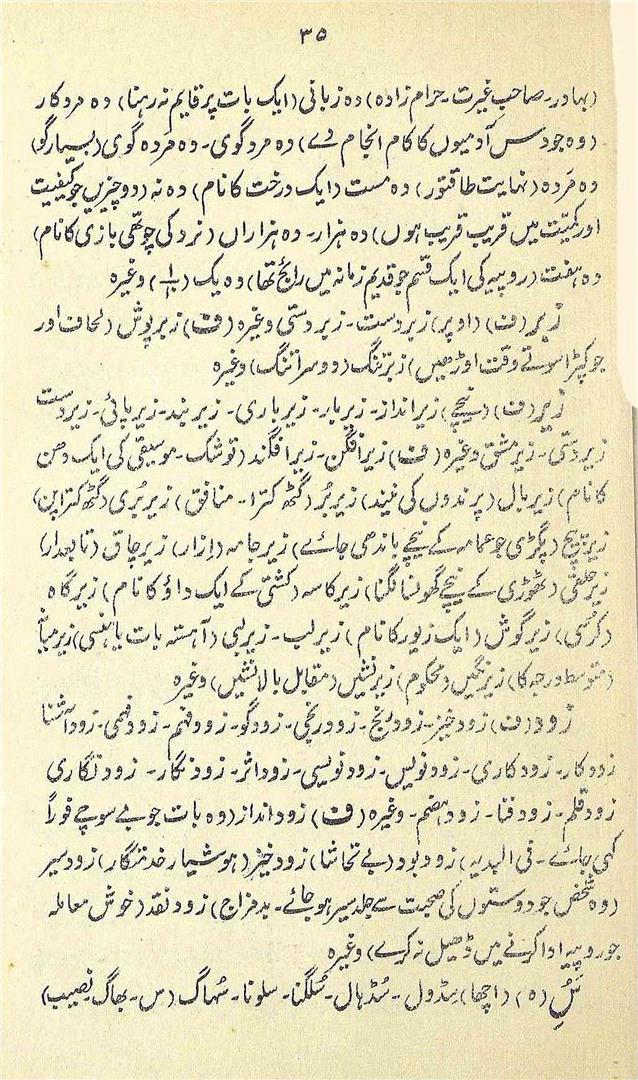 ۳۵
(بہادر۔ صاحب غیرت۔ حرام زادہ) دہ زبانی (ایک بات پر قایم نہ رہنا) دہ مردکار
(وہ جو دس آدمیوں کا کام انجام دے) دہ مردگوی۔ دہ مردہ گوی (بسیارگو)
دہ مَردہ (نہایت طاقتور) دہ مست (ایک درخت کا نام) دہ نہ (دو چیزیں جو کیفیت
اور کمیّت میں قریب قریب ہوں) دہ ہزار۔ دہ ہزاراں (نرد کی چوتھی بازی کا نام)
دہ ہفت (روپیہ کی ایک قسم جو قدیم زمانہ میں رائج تھا) دہ یک (۱/۱۰) وغیرہ
زَبر (ف) (اوپر) زبردست۔ زبردستی وغیرہ (ف) زبرپوش (لحاف اور
جو کپڑا سوتے وقت اوڑھیں) زبرتنگ (دوسرا تنگ) وغیرہ
زیر (ف) (نیچے) زیرانداز۔ زیربار۔ زیرباری۔ زیربند۔ زیرپائی۔ زیردست
زیردستی۔ زیرمشق وغیرہ (ف) زیرافگن۔ زیرافگند (توشک۔ موسیقی کی ایک دھن
کا نام) زیربال (پرندوں کی نیند) زیربُر (گٹھ کترا۔ منافق) زیربُری (گٹھ کتراپن)
زیرپیچ (پگڑی جو عمامہ کے نیچے باندھی جائے) زیرجامہ (اِزار) زیرچاق (تابعدار)
زیرحلقی (ٹھوڑی کے نیچے گھونسا لگنا) زیرکاسہ (کشتی کے ایک داؤ کا نام) زیرگاہ
(کرسی) زیرگوش (ایک زیور کا نام) زیرلب۔ زیرلبی (آہستہ بات یا ہنسی) زیرمیانہ
(متوسط درجہ کا) زیرنگیں (محکوم) زیرنشیں (مقابل بالانشیں) وغیرہ
زود (ف) زودخیز۔ زودرنج۔ زودرنجی۔ زودگو۔ زودفہم۔ زودفہمی۔ زودآشنا
زودکار۔ زودکاری۔ زودنویس۔ زودنویسی۔ زوداثر۔ زودنگار۔ زودنگاری
زودقلم۔ زودفنا۔ زودہضم۔ وغیرہ (ف) زودانداز (وہ بات جو بے سوچے فوراً
کہی جائے۔ فی البدیہہ) زودبود (بے تحاشا) زودخیز (ہوشیار خدمتگار) زودسیر
(وہ شخص جو دوستوں کی صحبت سے جلد سیر ہو جائے۔ بدمزاج) زودنقد (خوش معاملہ
جو روپیہ ادا کرنے میں ڈھیل نہ کرے) وغیرہ
سُ (ہ) (اچھا) سڈول۔ سُڈہال۔ سُلگنا۔ سلونا۔ سُہاگ (س۔ بھاگ۔ نصیب)